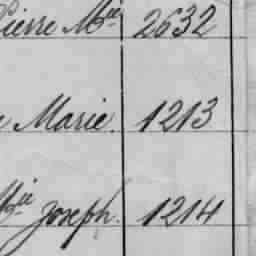 Pierre Mie 2632
Marie. 1213
Mie Joseph. 1214